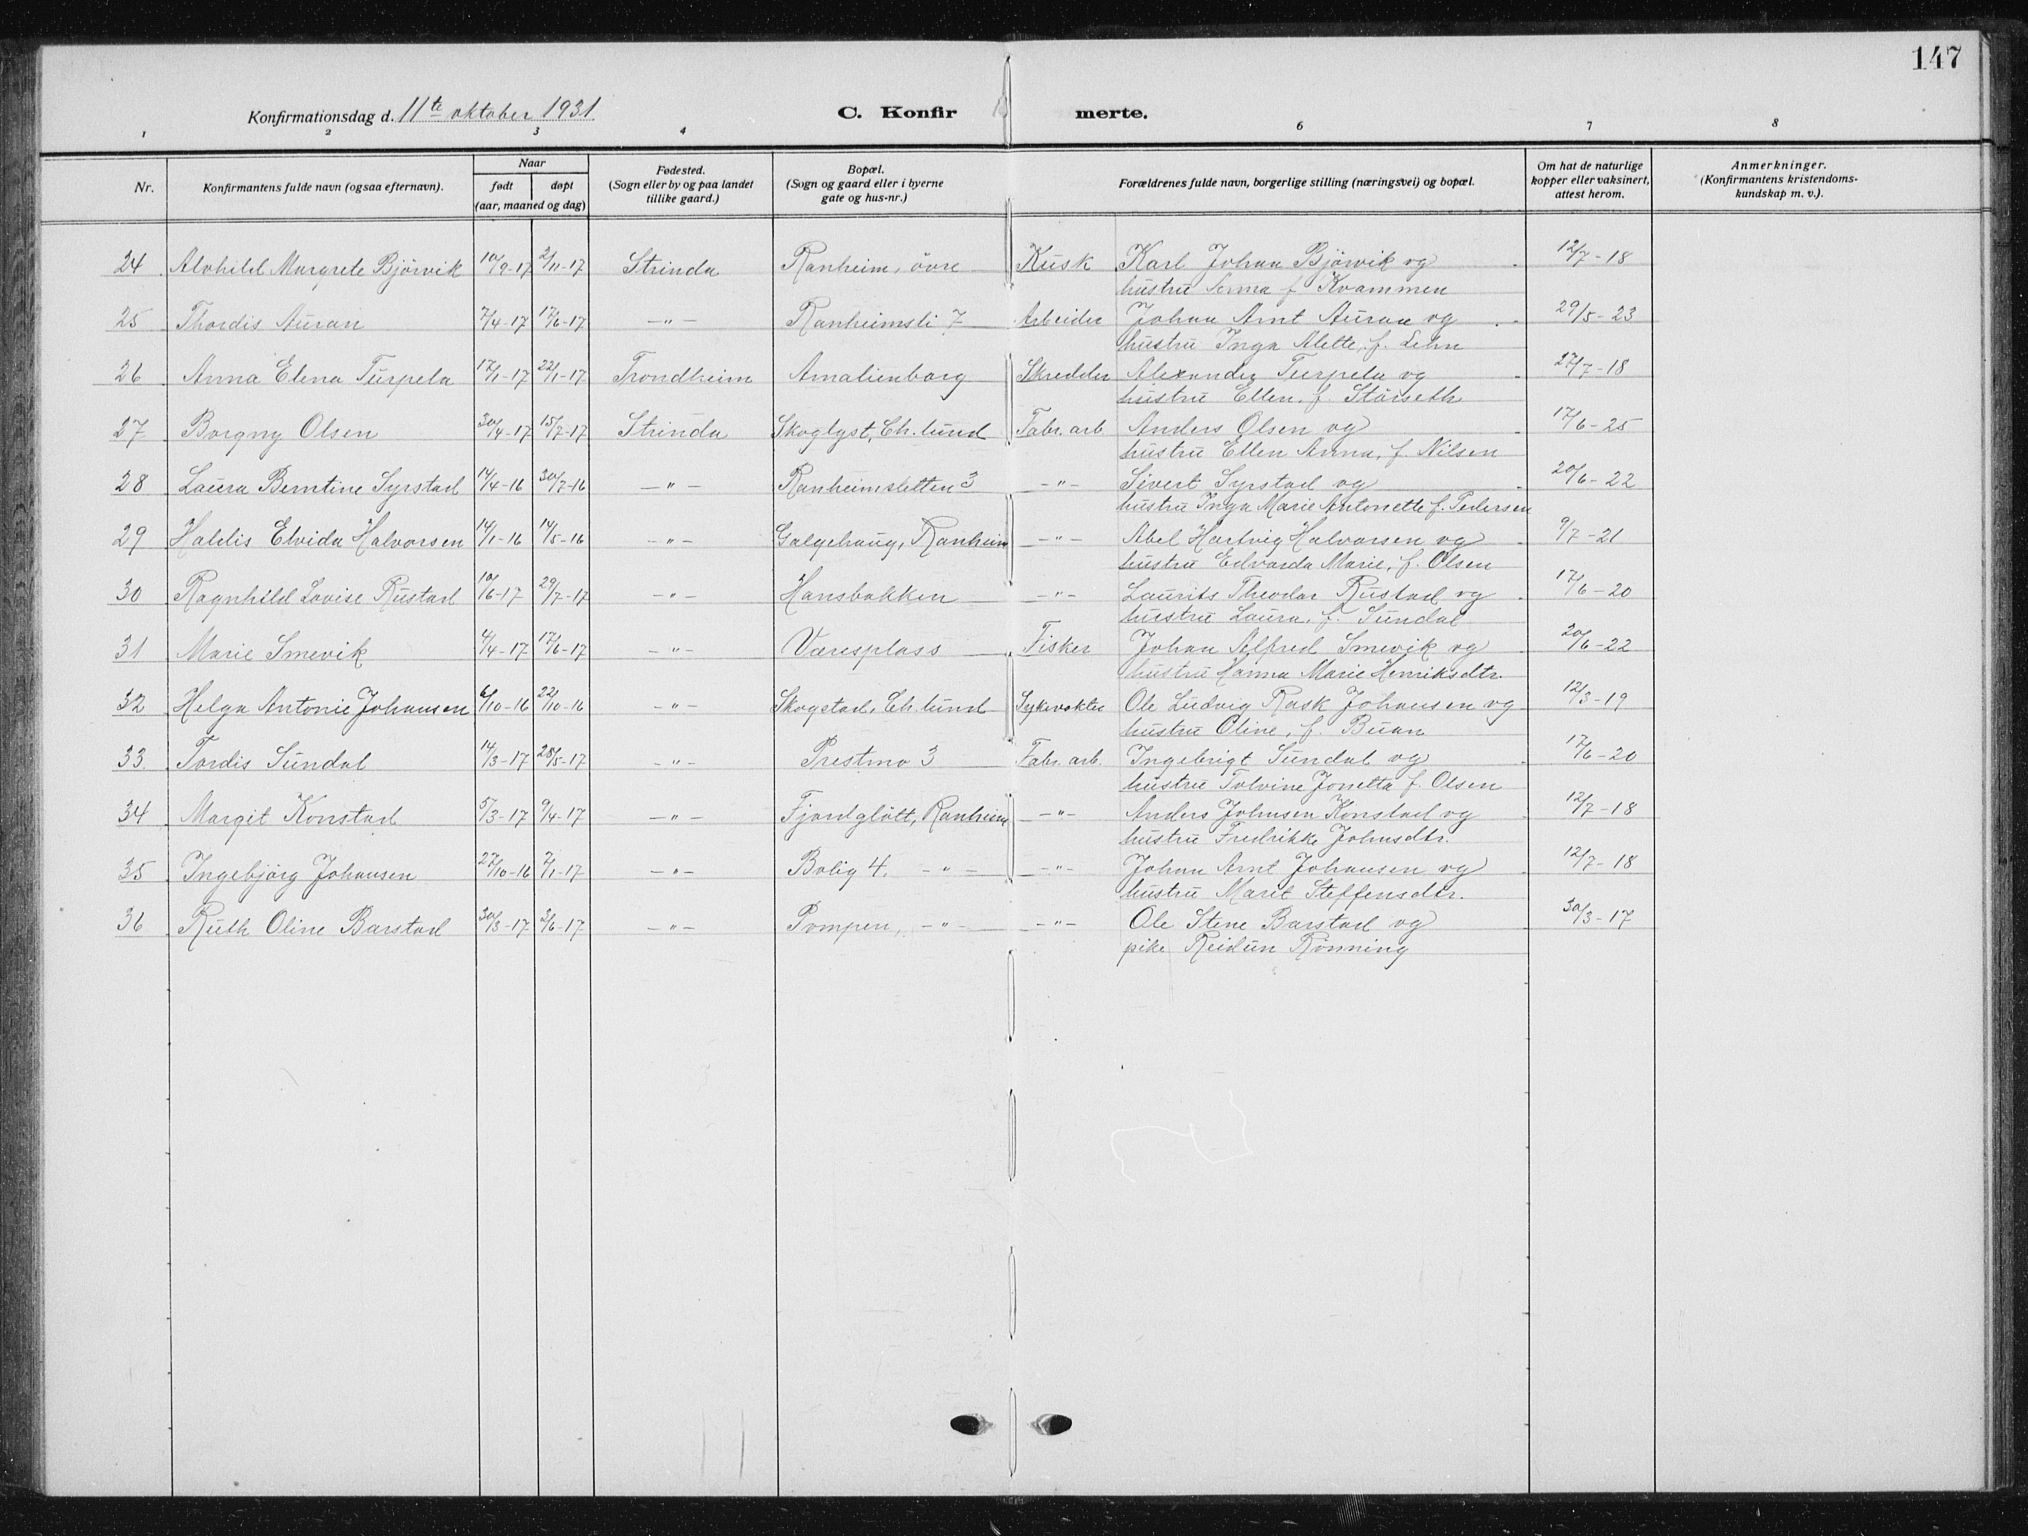 147
Konfirmationsdag d. 11te oktober 1931
C. Konfir merte.
1 2 3 4 6 7 8
Nr.
Konfirmantens fulde navn (ogsaa efternavn).
Naar
født
døpt
(aar, maaned og dag)
Fødested.
(Sogn eller by og paa landet
tillike gaard.)
Bopæl.
(Sogn og gaard eller i byerne
gate og hus-nr.)
Forældrenes fulde navn, borgerlige stilling (næringsvei) og bopæl.
Om hat de naturlige
kopper eller vaksinert,
attest herom.
Anmerkninger.
(Konfirmantens kristendoms-
kundskap m. v.).
24 Alvhild Margrete Bjørvik 10/9-17 2/11-17 Strinda Ranheim, övre Kusk Karl Johan Bjørvik og 12/7-18
hustru Anna f Kvammen
25 Thordis Auran 7/4-17 17/6-17 -"- Ranheimsli 7 Arbeider Johan Arnt Auran og 29/5-23
hustru Inga Alette, f. Lehn
26 Anna Elena Turpela 17/1-17 22/1-17 Trondheim Amalienborg Skredder Alexander Turpela og 27/7-18
hustru Ellen, f. Störseth
27 Borgny Olsen 30/4-17 15/7-17 Strinda Skoglyst, Ch.lund Fabr. arb Anders Olsen og 17/6-25
hustru Ellen Anna, f. Nilsen
28 Laura Berntine Syrstad 14/4-16 30/7-16 -"- Ranheimsletten 3 -"- Sivert Syrstad og 20/6-22
hustru Inga Marie Antonette f. Pedersen
29 Haldis Elvida Halvorsen 14/1-16 14/5-16 -"- Galgehaug, Ranheim -"- Abel Hartvig Halvorsen og 9/7-21
hustru Edvarda Marie, f. Olsen
30 Ragnhild Lovise Rustad 10/6-17 29/7-17 -"- Hansbakken -"- Laurits Theodor Rustad og 17/6-20
hustru Laura, f. Sundal
31 Marie Smevik 4/4-17 17/6-17 -"- Væresplass Fisker Johan Alfred Smevik og 20/6-22
hustru Hanna Marie Henriksdtr.
32 Helga Antonie Johansen 6/10-16 22/10-16 -"- Skogstad, Ch.lund Sykevokter Ole Ludvig Rask Johansen og 12/3-19
hustru Oline, f. Buan
33. Tordis Sundal 14/3-17 28/5-17 -"- Prestmo 3 Fabr. arb. Ingebrigt Sundal og 17/6-20
hustru Tolvine Jonetta f. Olsen
34 Margit Konstad 5/3-17 9/4-17 -"- Fjordglött, Ranheim -"- Anders Johnsen Konstad og 12/7-18
hustru Fredrikke Johnsdtr.
35 Ingebjörg Johansen 27/10-16 7/1-17 -"- Bolig 4. -"- -"- Johan Arnt Johansen og 12/7-18
hustru Marit Steffensdtr.
36 Ruth Oline Barstad 30/3-17 3/6-17 -"- Pompen, -"- -"- Ole Stene Barstad og 30/3-17
pike Reidun Rönning